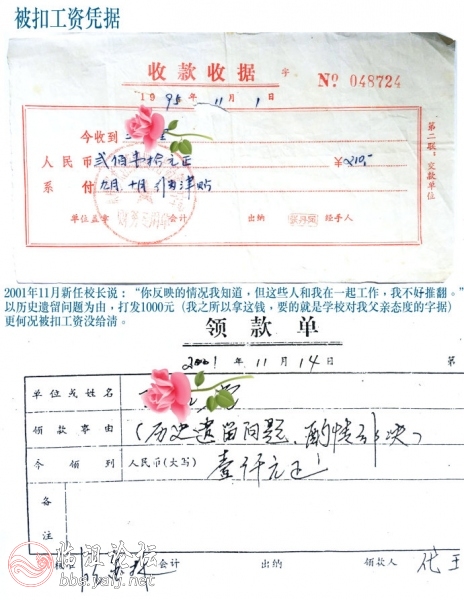 被扣工资凭据
收款收据 字 № 048724
1995年11月1日
今收到
人民币 贰佰壹拾元正 ¥210.-
系付 九月、十月 津贴
单位盖章 会计 出纳 经手人
第二联：交款单位
财务专用章
2001年11月新任校长说：“你反映的情况我知道，但这些人和我在一起工作，我不好推翻。”
以历史遗留问题为由，打发1000元（我之所以拿这钱，要的就是学校对我父亲态度的字据）
更何况被扣工资没给清。
领款单
2001年11月14日 第
单位或姓名
领款事由 （历史遗留问题、酌情解决）
今领到 人民币（大写） 壹仟元正
备注
会计 出纳 领款人 代王
临沮论坛
bbs.yalyt.net